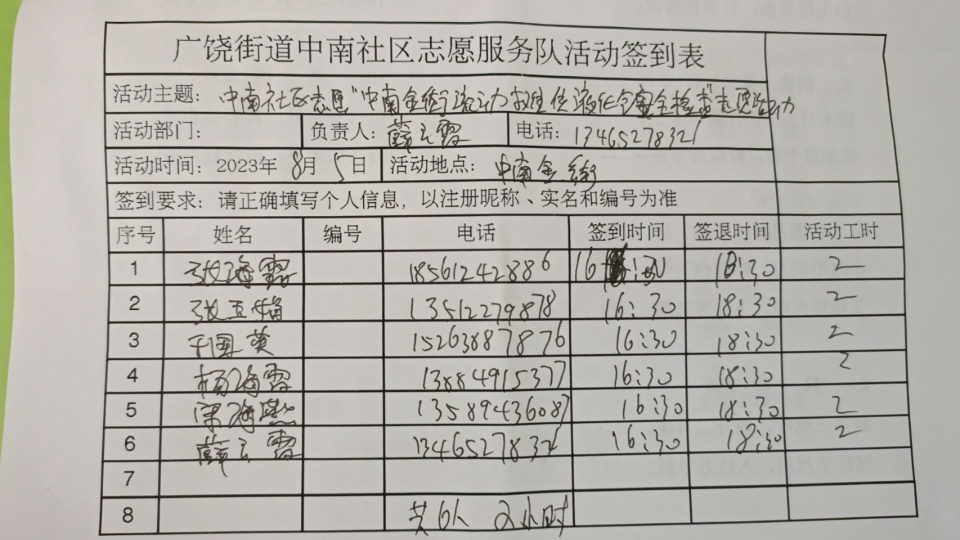 广饶街道中南社区志愿服务队活动签到表
活动主题：中南社区志愿"中南金街流动救生设液化气安全检查"志愿活动
活动部门： 负责人：薛云霞 电话：13465278326
活动时间：2023年 8月 5日 活动地点：中南金街
签到要求：请正确填写个人信息，以注册昵称、实名和编号为准
序号 姓名 编号 电话 签到时间 签退时间 活动工时
1 张海霞 18561242886 16:30 18:30 2
2 张玉梅 13512279878 16:30 18:30 2
3 于国英 15263887876 16:30 18:30 2
4 杨海霞 13884915377 16:30 18:30 2
5 宋海燕 13589436087 16:30 18:30 2
6 薛云霞 13465278326 16:30 18:30 2
7
8 共6人 2小时